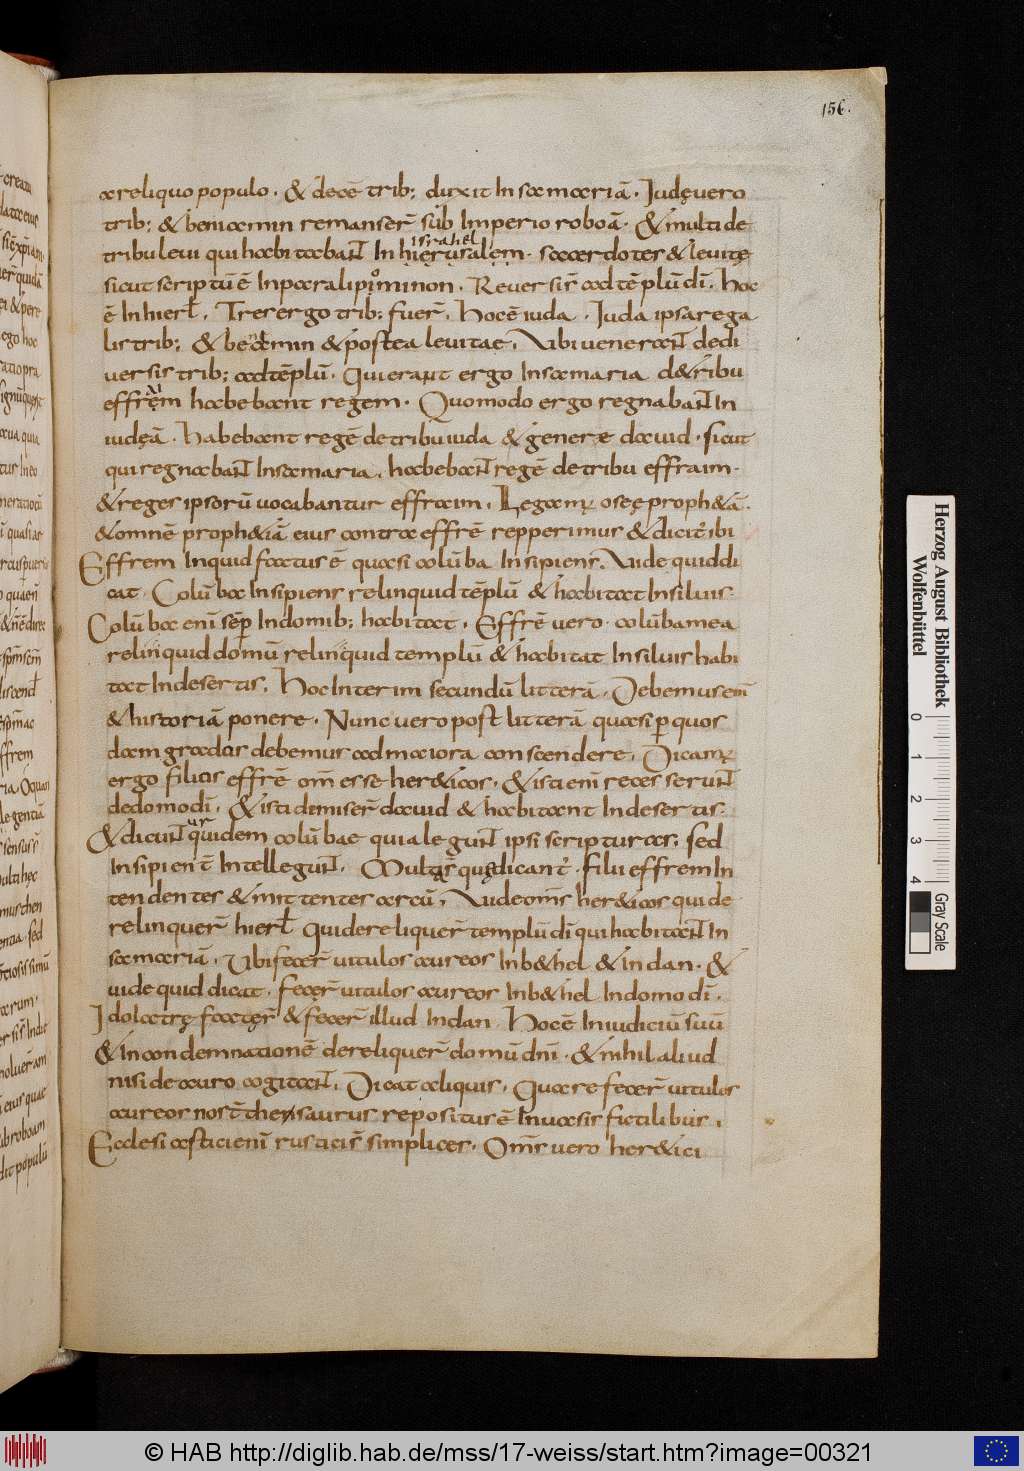 156.
a reliquo populo . & decē trib; duxit In samariā . Iudę vero
trib; & beniamin remanser̄ sub Imperio roboā . & multi de
tribu leui qui habitaban̄t In hierusalem . sacerdotes & leuitę
israhel
sicut scriptū ē In paralipominon . Reuersi s̄ ad tēplū dī . Hoc
ē In hierl̄ . Tres ergo trib; fuer̄ . Hoc ē iuda . Iuda ipsa rega
lis trib; & beniamin & postea leuitae . Ubi venerant dedi
uersis trib; ad tēplū . Qui erant ergo In samaria de tribu
effrem habebant regem . Quomodo ergo regnabant In
iudęā . habebant regē de tribu iuda & genere dauid . sicut
qui regnabant In samaria . habebant regē de tribu effraim .
& reges ipsorū uocabantur effraim . Legam; oseę proph&ā .
& omnē proph&iā eius contra effrē repperimus & dicit ibi
Effrem Inquid factus ē quasi colūba Insipiens . Uide quid di
cat . Colūba Insipiens relinquid tēplū & habitat In siluis .
Colūba enī sēp In domib; habitat . Effrē vero . colūba mea
relinquid domū relinquid templū & habitat In siluis habi
tat In desertis . Hoc Interim secundū litterā . Debemus enī
& historiā ponere . Nunc vero post litterā quasi p quos
dam gradus debemus ad maiora conscendere . Dicam;
ergo filiois effrē om̄ esse her&icos . & isti enī reces serunt
de domo dī . & isti dimiser̄ dauid & habitant In desertis .
& dicunt quidem colūbae quia legunt ipsi scripturas; sed
Insipient̄ Intellegunt . Multa quędicant . filii effrem In
tendentes & mittentes arcū . Uide om̄s her&icos qui de
relinquer̄ hierl̄ Qui dereliquer̄ templū dī qui habitant In
samariā . Ubi fecer̄ uitulos aureos In b&hel & in dan . &
uide quid dicat . fecer̄ uitulos aureos In b&hel In domo dī .
Idolatrę facter̄ & fecer̄ illud In dan Hoc ē In iudiciū suū
& in condemnationē dereliquer̄ domū dnī . & nihil aliud
nisi de auro cogitant . Dicat aliquis . Quare fecer̄ uitulos
aureos nost̄ thensaurus repositus ē In uasis fictilibus .
Ecclesiastici enī rustici s̄ simplices . Om̄s vero her&ici
Herzog August Bibliothek
Wolfenbüttel
0 1 2 3 4
Gray Scale
© HAB http://diglib.hab.de/mss/17-weiss/start.htm?image=00321